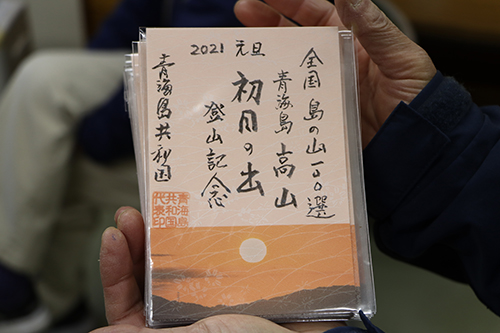 2021 元旦
全国 島の山一〇〇選
青海島 高山
初日の出
登山記念
青海島共和国
青海島
共和国
代表印